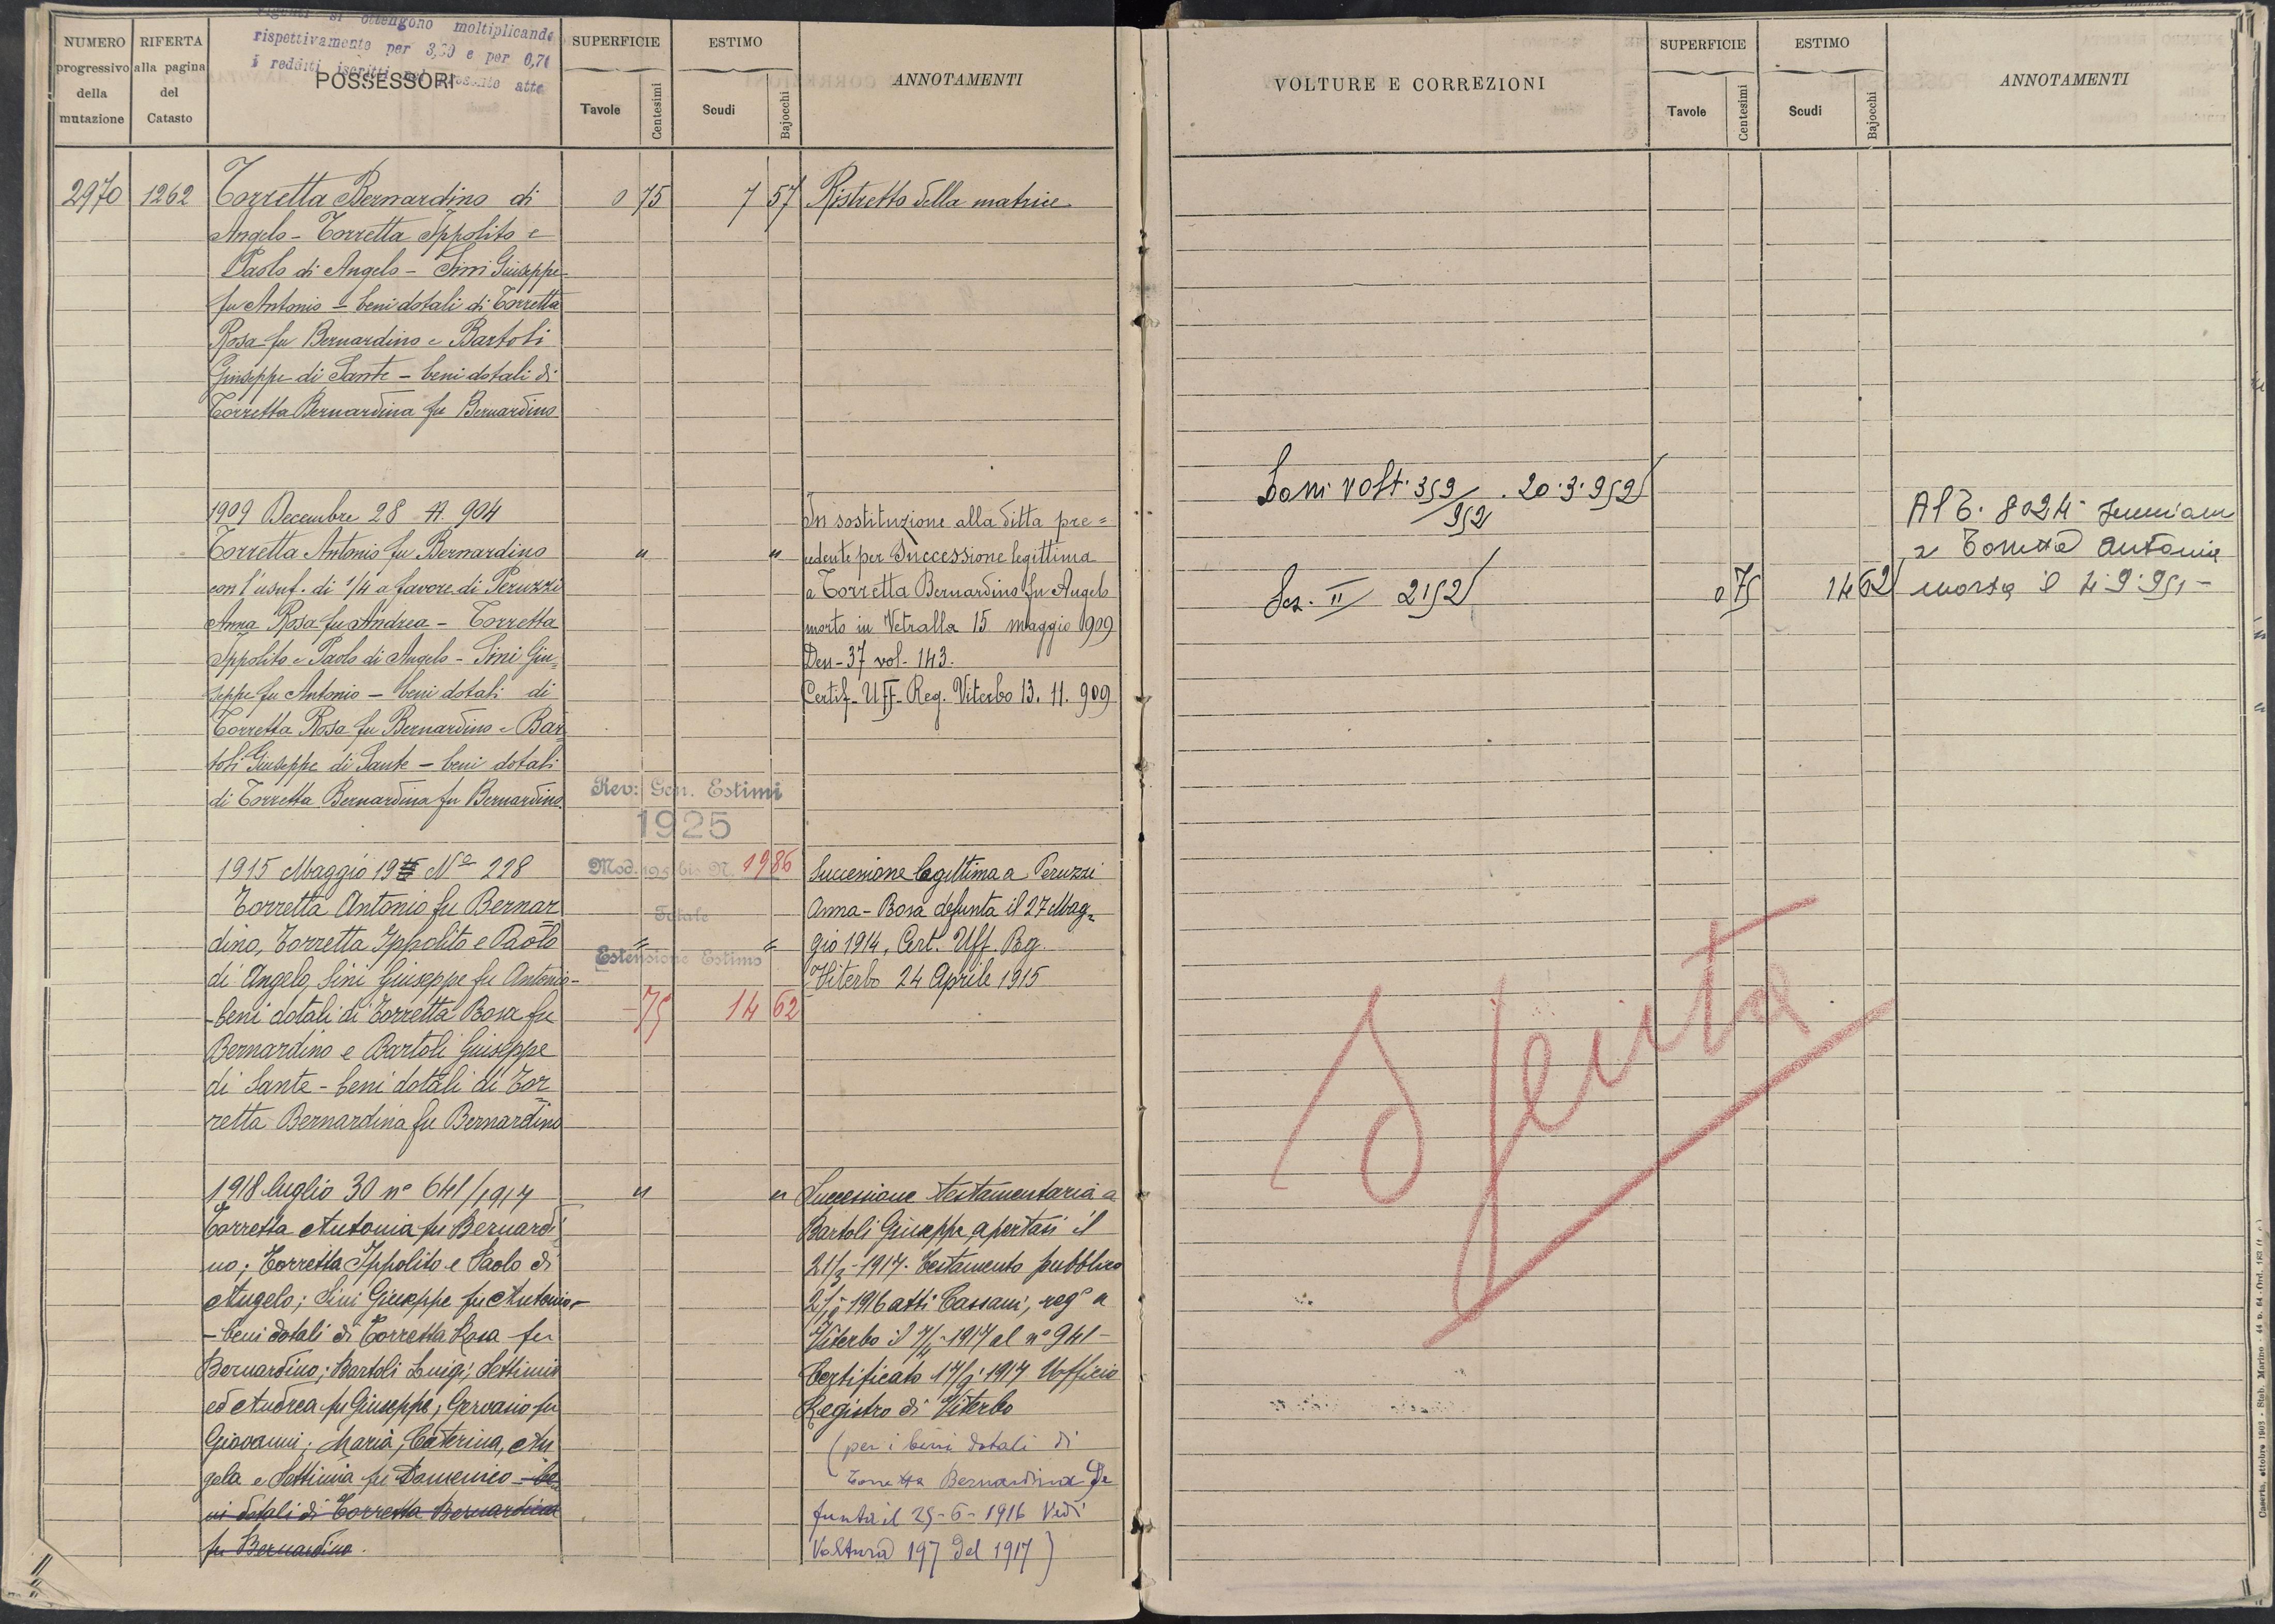 si ottengono moltiplicando
rispettivamente per 3,50 e per 0,70
I redditi iscritti nel presente atto
NUMERO progressivo della mutazione
RIFERTA alla pagina del Catasto
POSSESSORI
SUPERFICIE
Tavole
Centesimi
ESTIMO
Scudi
Bajocchi
ANNOTAMENTI
2970 1262 Torretta Bernardino di 0 75 7 57 Ristretto della matrice
Angelo - Torretta Ippolito e
Paolo di Angelo - Sini Giuseppe
fu Antonio - beni dotali di Torretta
Rosa fu Bernardino e Bartoli
Giuseppe di Sante - beni dotali di
Torretta Bernardina fu Bernardino
1909 Decembre 28 N. 904
Torretta Antonio fu Bernardino " "
con l'usuf. di 1/4 a favore di Peruzzi
Anna Rosa fu Andrea - Torretta
Ippolito e Paolo di Angelo - Sini Giu=
seppe fu Antonio - beni dotali di
Torretta Rosa fu Bernardino e Bar=
toli Giuseppe di Sante - beni dotali
di Torretta Bernardina fu Bernardino
In sostituzione alla ditta pre=
cedente per Successione legittima
a Torretta Bernardino fu Angelo
morto in Vetralla 15 maggio 1909
Den - 37 vol - 143.
Certif - Uff - Reg. Viterbo 13. 11. 909
Rev: Gen. Estimi
1925
Mod. 195 bis N. 1986
Totale
Estensione Estimo
- 75 14 62
1915 Maggio 19 Nº 228
Torretta Antonio fu Bernar
dino, Torretta Ippolito e Paolo " "
di Angelo, Sini Giuseppe fu Antonio -
- beni dotali di Torretta Rosa fu
Bernardino e Bartoli Giuseppe
di Sante - beni dotali di Tor=
retta Bernardina fu Bernardino
Successione legittima a Peruzzi
Anna - Rosa defunta il 27 Mag=
gio 1914, Cert. Uff. Reg.
Viterbo 24 Aprile 1915
1918 luglio 30 nº 641/1917 " "
Torretta Antonia fu Bernardi
no; Torretta Ippolito e Paolo di
Angelo; Sini Giuseppe fu Antonio -
- beni dotali di Torretta Rosa fu
Bernardino; Bartoli Luigi, Settimio
ed Andrea fu Giuseppe; Gervasio fu
Giovanni; Maria, Caterina, An
gela e Settimia fu Domenico - be
ni dotali di Torretta Bernardina
fu Bernardino.
Successione testamentaria a
Bartoli Giuseppe, apertasi il
21/3-1917. Testamento pubblico
1916 atti Cassani, regº a
Viterbo il 1917 al nº 941 -
Certificato 1917 Ufficio
Registro di Viterbo
(per i beni dotali di
Torretta Bernardina de
funta il 25-6-1916 Vedi
Voltura 197 del 1917)
VOLTURE E CORREZIONI
SUPERFICIE
Tavole
Centesimi
ESTIMO
Scudi
Bajocchi
ANNOTAMENTI
volt. 359/952 . 20.3.952
Sez. II 2152 0 75 14 62
Al C. 8024
a Torretta Antonia
morta il 4.9.951 -
Sfeita
Caserta, ottobre 1903 - Stab. Marino